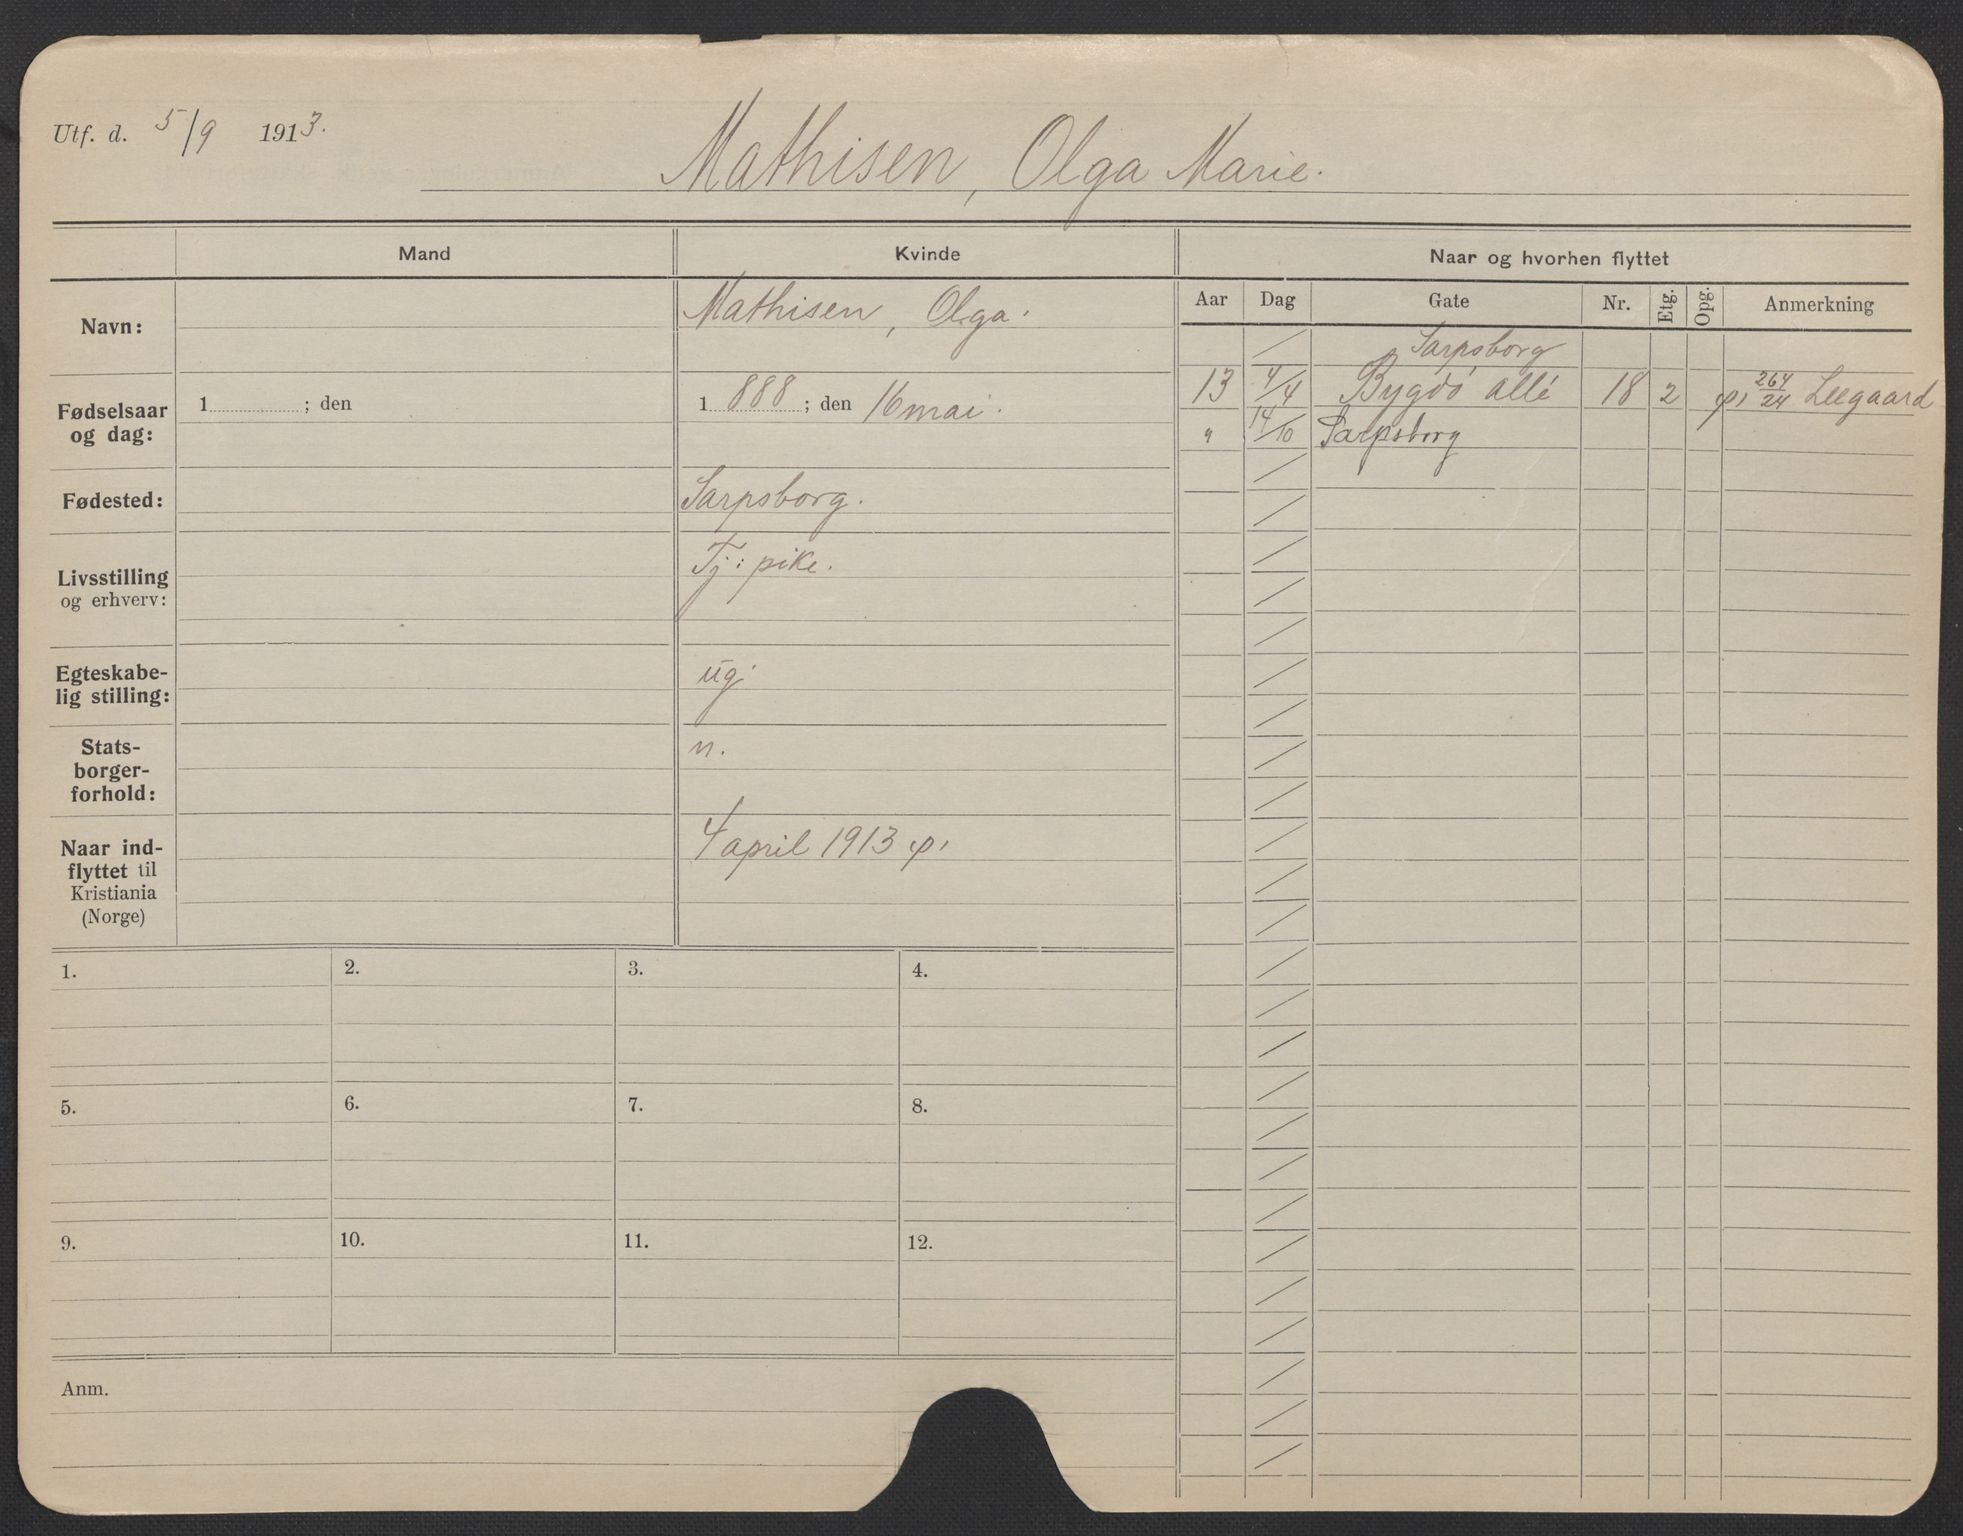 Utf. d. 5/9 1913.
Mathisen, Olga Marie.
Mand
Kvinde
Naar og hvorhen flyttet
Navn:
Mathisen, Olga.
Fødselsaar og dag:
1 ; den
1 888 ; den 16 mai.
Fødested:
Sarpsborg.
Livsstilling
og erhverv:
Tj: pike.
Egteskabe-
lig stilling:
ug.
Stats-
borger-
forhold:
n.
Naar ind-
flyttet til
Kristiania
(Norge)
4 april 1913
Aar Dag Gate Nr. Etg. Opg. Anmerkning
Sarpsborg
13 4/4 Bygdö allé 18 2 264/24 Leegaard
" 14/10 Sarpsborg
1. 2. 3. 4.
5. 6. 7. 8.
9. 10. 11. 12.
Anm.